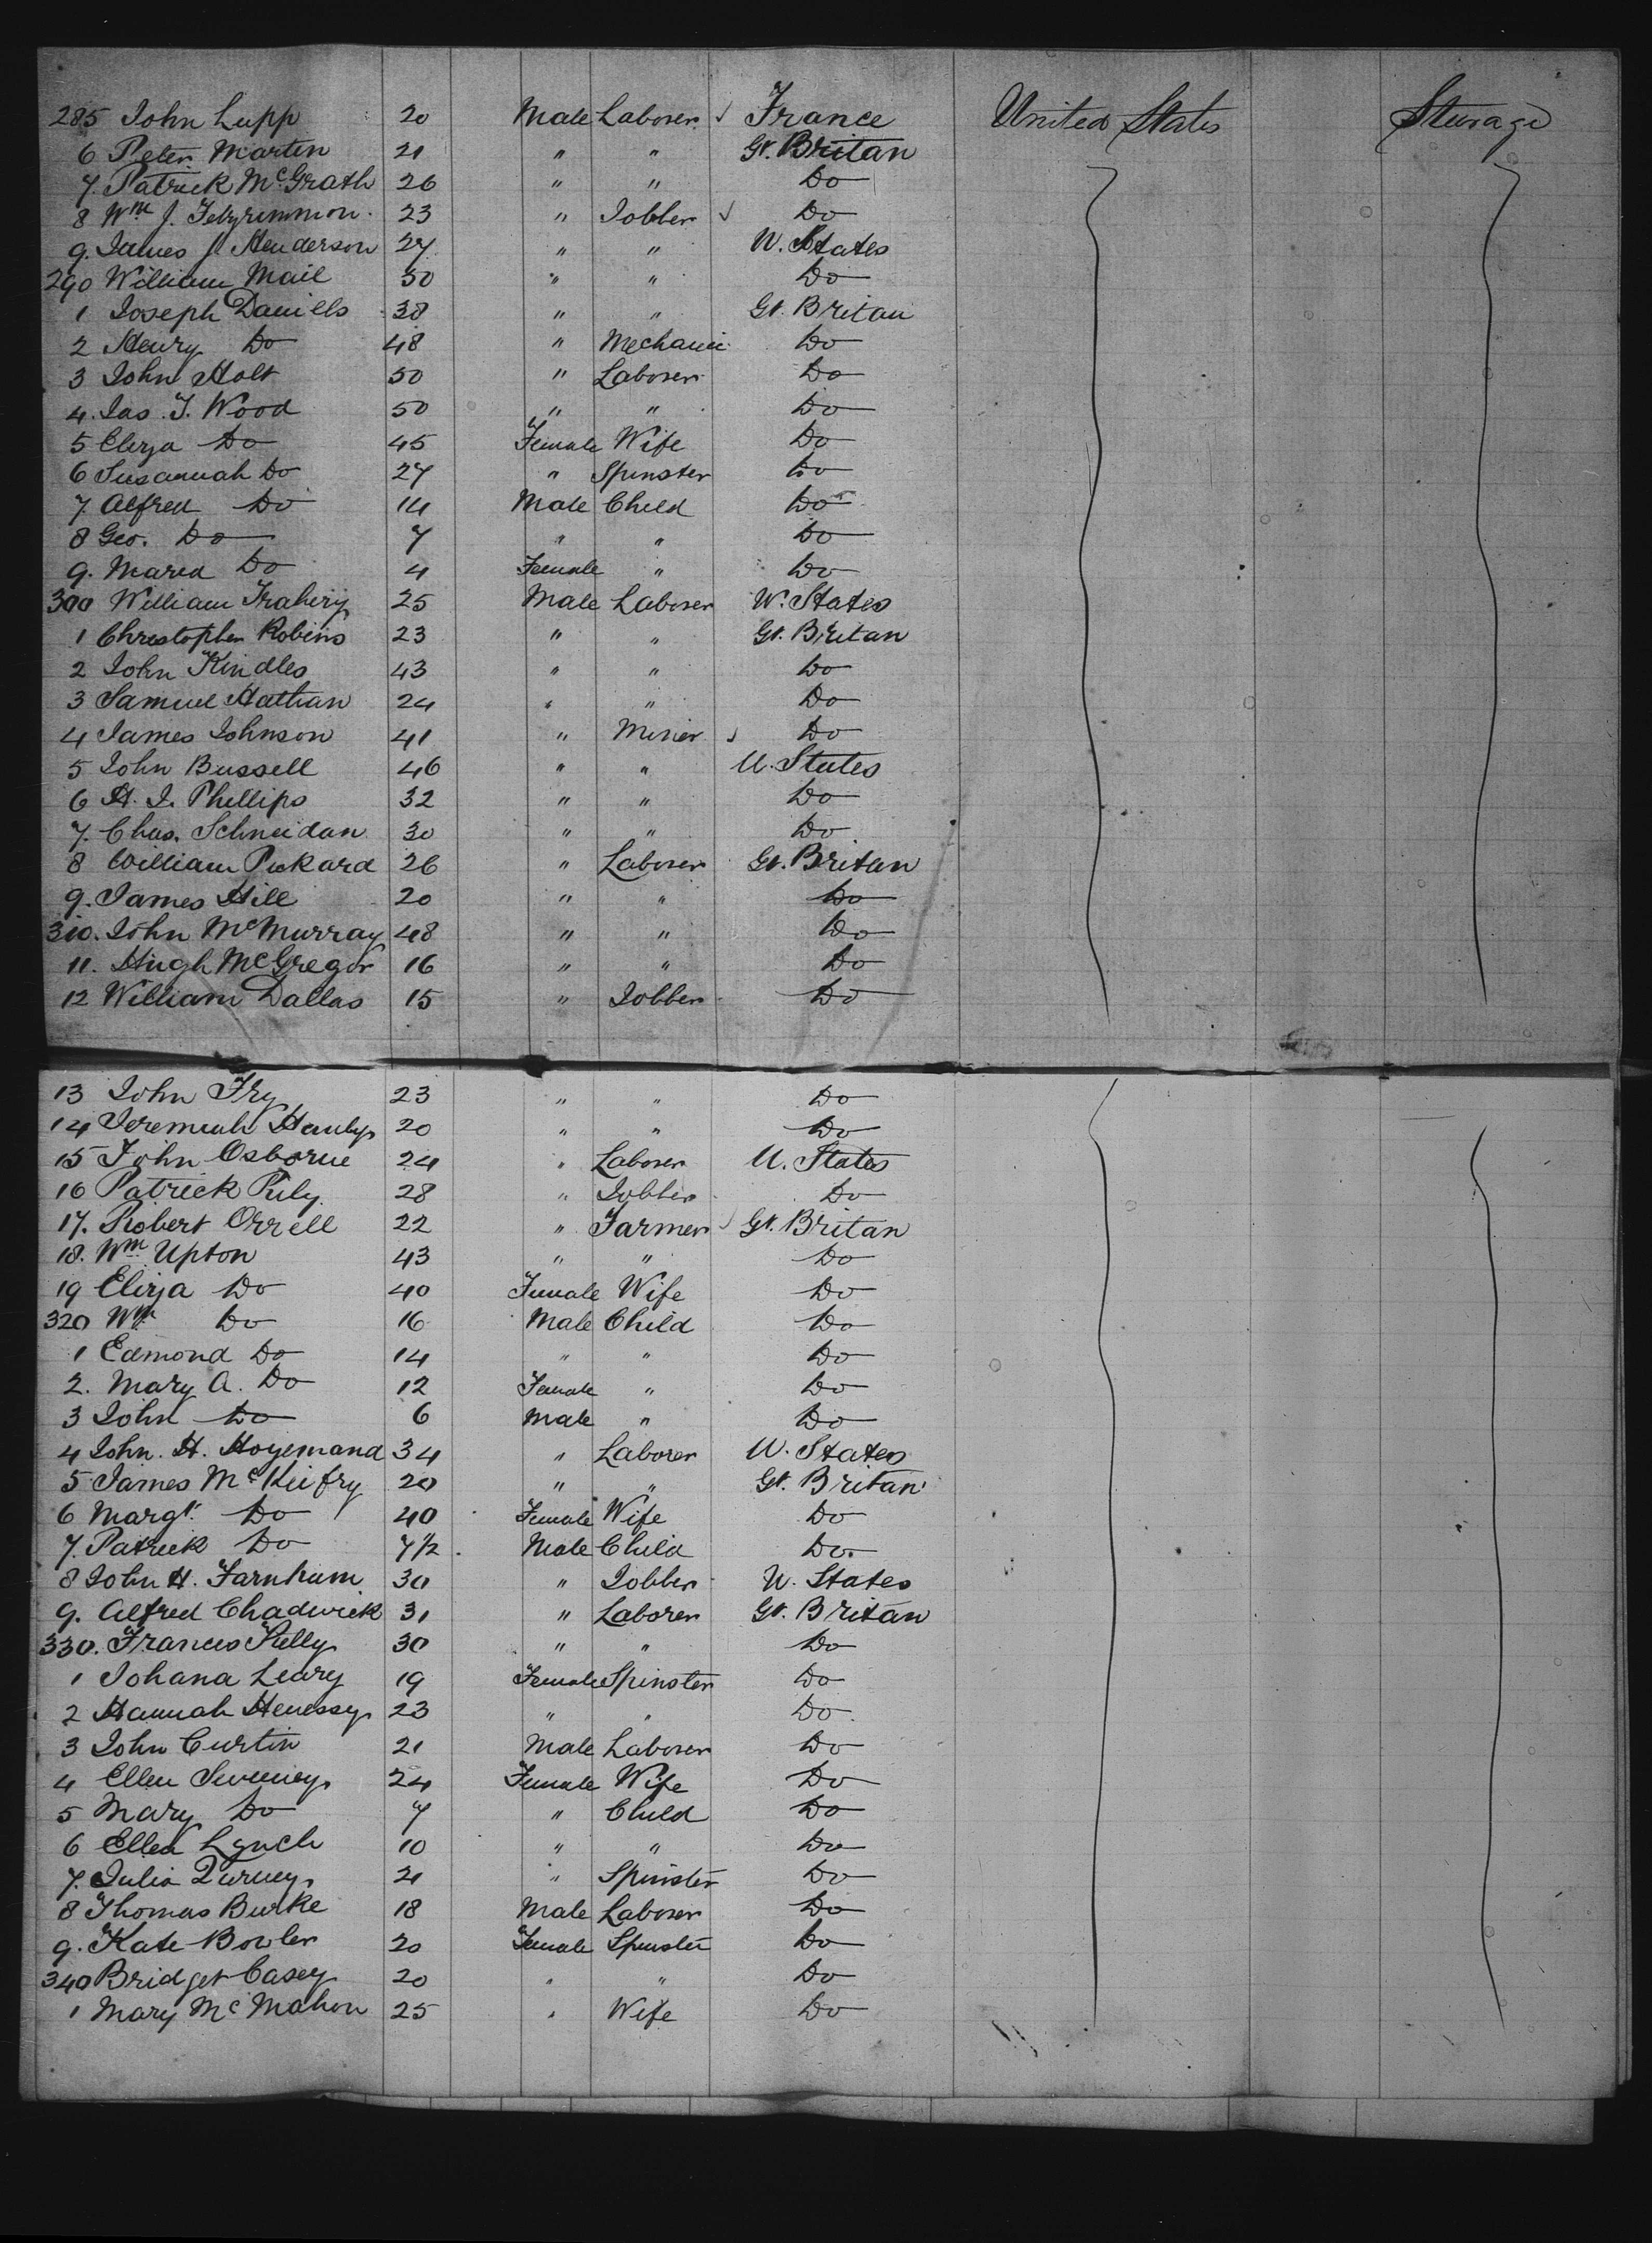 285 John Lupp 20 Male Laborer ✓ France United States Sturage
6 Peter Martin 21 " " Gt. Britan
7. Patrick McGrath 26 " " Do
8 Wm J. 23 " Jobber ✓ Do
9. James J Henderson 27 " " U. States
290 William Mail 50 " " Do
1 Joseph Daniels 38 " " Gt. Britan
2 Henry Do 48 " Mechanic Do
3 John Holt 50 " Laborer Do
4. Jas. T. Wood 50 " " Do
5 Eliza Do 45 Female Wife Do
6 Susannah Do 27 " Spinster Do
7 Alfred Do 14 Male Child Do
8 Geo. Do 7 " " Do
9. Maria Do 4 Female " Do
300 William 25 Male Laborer U. States
1 Christopher Robins 23 " " Gt. Britan
2 John Kindles 43 " " Do
3 Samuel 24 " " Do
4 James Johnson 41 " Miner ✓ Do
5 John Bussell 46 " " U. States
6 H. J. Phillips 32 " " Do
7. Chas. Schneidan 30 " " Do
8 William Pickard 26 " Laborer Gt. Britan
9. James Hill 20 " " Do
310. John McMurray 48 " " Do
11. Hugh McGregor 16 " " Do
12 William Dallas 15 " Jobber Do
13 John Fry 23 " " Do
14 Jeremiah Hanly 20 " " Do
15 John Osborne 24 " Laborer U. States
16 Patrick Rily 28 " Jobber Do
17. Robert Orrell 22 " Farmer ✓ Gt. Britan
18. Wm Upton 43 " " Do
19 Eliza Do 40 Female Wife Do
320 Wm Do 16 Male Child Do
1 Edmond Do 14 " " Do
2. Mary A. Do 12 Female " Do
3 John Do 6 Male " Do
4 John. H. Hoyemand 34 " Laborer U. States
5 James McKeifry 20 " " Gt. Britan
6 Margt. Do 40 Female Wife Do
7. Patrick Do 7½ Male Child Do.
8 John H. Farnhum 30 " Jobber U. States
9. Alfred Chadwick 31 " Laborer Gt. Britan
330. Francis Kelly 30 " " Do
1 Johana Leary 19 Female Spinster Do
2 Hannah Henessy 23 " " Do.
3 John Curtin 21 Male Laborer Do
4 Ellen Sweeney 24 Female Wife Do
5 Mary Do 7 " Child Do
6 Ellen Lynch 10 " " Do
7. Julia 21 " Spinster Do
8 Thomas Burke 18 Male Laborer Do
9. Kate Bowler 20 Female Spinster Do
340 Bridget Casey 20 " " Do
1 Mary McMahon 25 " Wife Do